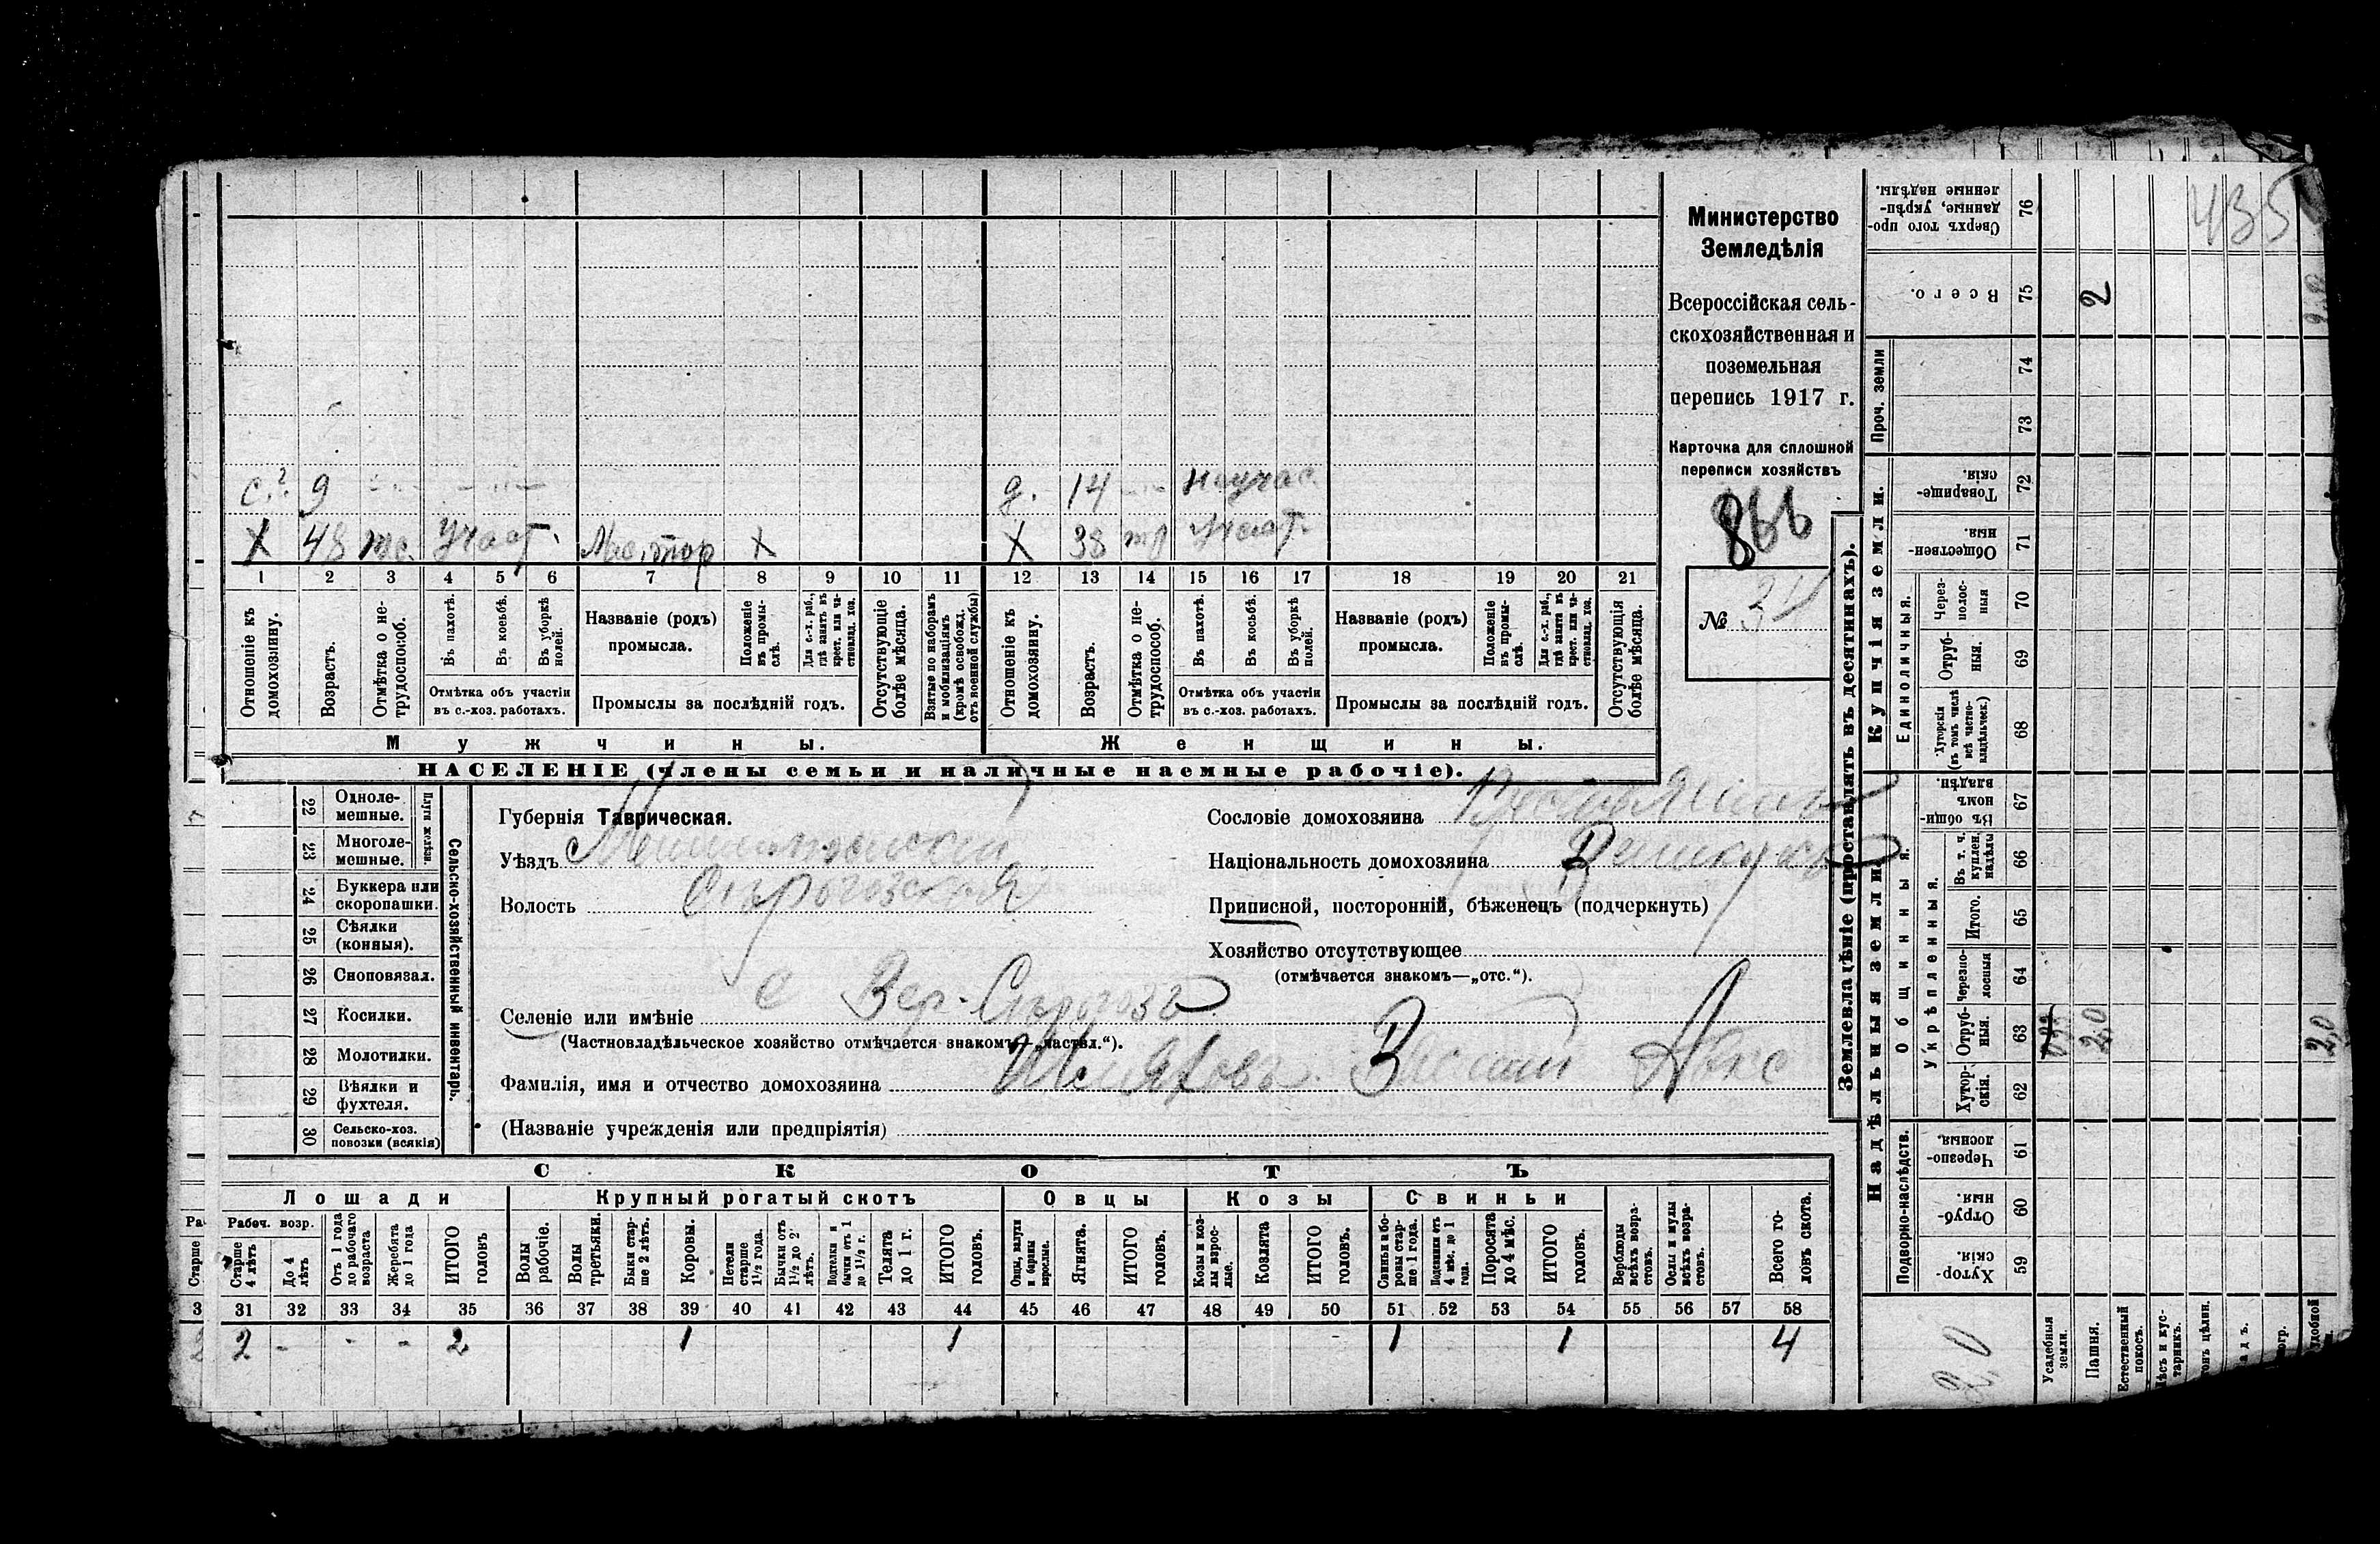 с. 9
д. 14 неучас.
X 48 Участ. X
X 38 Участ.
1 2 3 4 5 6 7 8 9 10 11 12 13 14 15 16 17 18 19 20 21
Отношеніе къ домохозяину.
Возрастъ.
Отмѣтка о нетрудоспособ.
Въ пахотѣ.
Въ косьбѣ.
Въ уборкѣ полей.
Отмѣтка объ участіи въ с.-хоз. работахъ.
Названіе (родъ) промысла.
Положеніе въ промыслѣ.
Для с.-х. раб., гдѣ занятъ въ крест. или частновлад. хоз.
Промыслы за послѣдній годъ.
Отсутствующіе болѣе мѣсяца.
Взятые по наборамъ и мобилизаціямъ (кромѣ освобожд. отъ военной службы)
Отношеніе къ домохозяину.
Возрастъ.
Отмѣтка о нетрудоспособ.
Въ пахотѣ.
Въ косьбѣ.
Въ уборкѣ полей.
Отмѣтка объ участіи въ с.-хоз. работахъ.
Названіе (родъ) промысла.
Положеніе въ промыслѣ.
Для с.-х. раб., гдѣ занята въ крест. или частновлад. хоз.
Промыслы за послѣдній годъ.
Отсутствующія болѣе мѣсяца.
Мужчины.
Женщины.
НАСЕЛЕНІЕ (члены семьи и наличные наемные рабочіе).
Министерство
Земледѣлія
Всероссійская сель-
скохозяйственная и
поземельная
перепись 1917 г.
Карточка для сплошной
переписи хозяйствъ
866
№
22 Одноле-мешные.
23 Многоле-мешные.
Плуги желѣзн.
24 Буккера или скоропашки.
25 Сѣялки (конныя).
26 Сноповязал.
27 Косилки.
28 Молотилки.
29 Вѣялки и фухтеля.
30 Сельско-хоз. повозки (всякія)
Сельско-хозяйственный инвентарь.
Губернія Таврическая.
Уѣздъ Мелитопольскій
Волость Сѣрогозская
Селеніе или имѣніе с Вер. Сѣрогозы
(Частновладѣльческое хозяйство отмѣчается знакомъ—„частвл.“).
Фамилія, имя и отчество домохозяина
(Названіе учрежденія или предпріятія)
Сословіе домохозяина
Національность домохозяина
Приписной, посторонній, бѣженецъ (подчеркнуть)
Хозяйство отсутствующее
(отмѣчается знакомъ—„отс.“).
СКОТЪ
Лошади
Крупный рогатый скотъ
Овцы
Козы
Свиньи
Рабоч. возр.
Старше 4 лѣтъ
До 4 лѣтъ
Отъ 1 года до рабочаго возраста
Жеребята до 1 года
ИТОГО головъ
Волы рабочіе.
Волы третьяки.
Быки старше 2 лѣтъ.
Коровы.
Нетели старше 1½ года.
Бычки отъ 1½ до 2 лѣтъ.
Подтелки и бычки отъ 1 до 1½ г.
Телята до 1 г.
ИТОГО головъ.
Овцы, валухи и бараны взрослые.
Ягнята.
ИТОГО головъ.
Козы и козлы взрослые.
Козлята
ИТОГО головъ.
Свиньи и боровы старше 1 года.
Подсвинки отъ 4 мѣс. до 1 года.
Поросята до 4 мѣс.
ИТОГО головъ.
Верблюды всѣхъ возрастовъ.
Ослы и мулы всѣхъ возрастовъ.
Всего головъ скота.
31 32 33 34 35 36 37 38 39 40 41 42 43 44 45 46 47 48 49 50 51 52 53 54 55 56 57 58
2 - - - 2 1 1 1 1 4
Землевладѣніе (проставлять въ десятинахъ).
Купчія земли.
Надѣльныя земли.
Сверхъ того проданные, укрѣпленные надѣлы. 76
Всего. 75 2
Проч. земли
74
73
Товарищескія. 72
Общественныя. 71
Единоличныя.
Черезполосныя 70
Отрубныя. 69
Хуторскія (въ томъ числѣ всѣ частновладѣльческ.) 68
Общинныя.
Въ общинномъ владѣн. 67
Въ т. ч. куплен. надѣлы 66
Укрѣпленныя.
Итого. 65
Черезполосныя 64
Отрубныя. 63 2,0 2,0
Хуторскія. 62
Подворно-наслѣдств.
Черезполосныя. 61
Отрубныя. 60
Хуторскія. 59
2,0
Усадебныя земли.
Пашня.
Естественный покосъ.
435